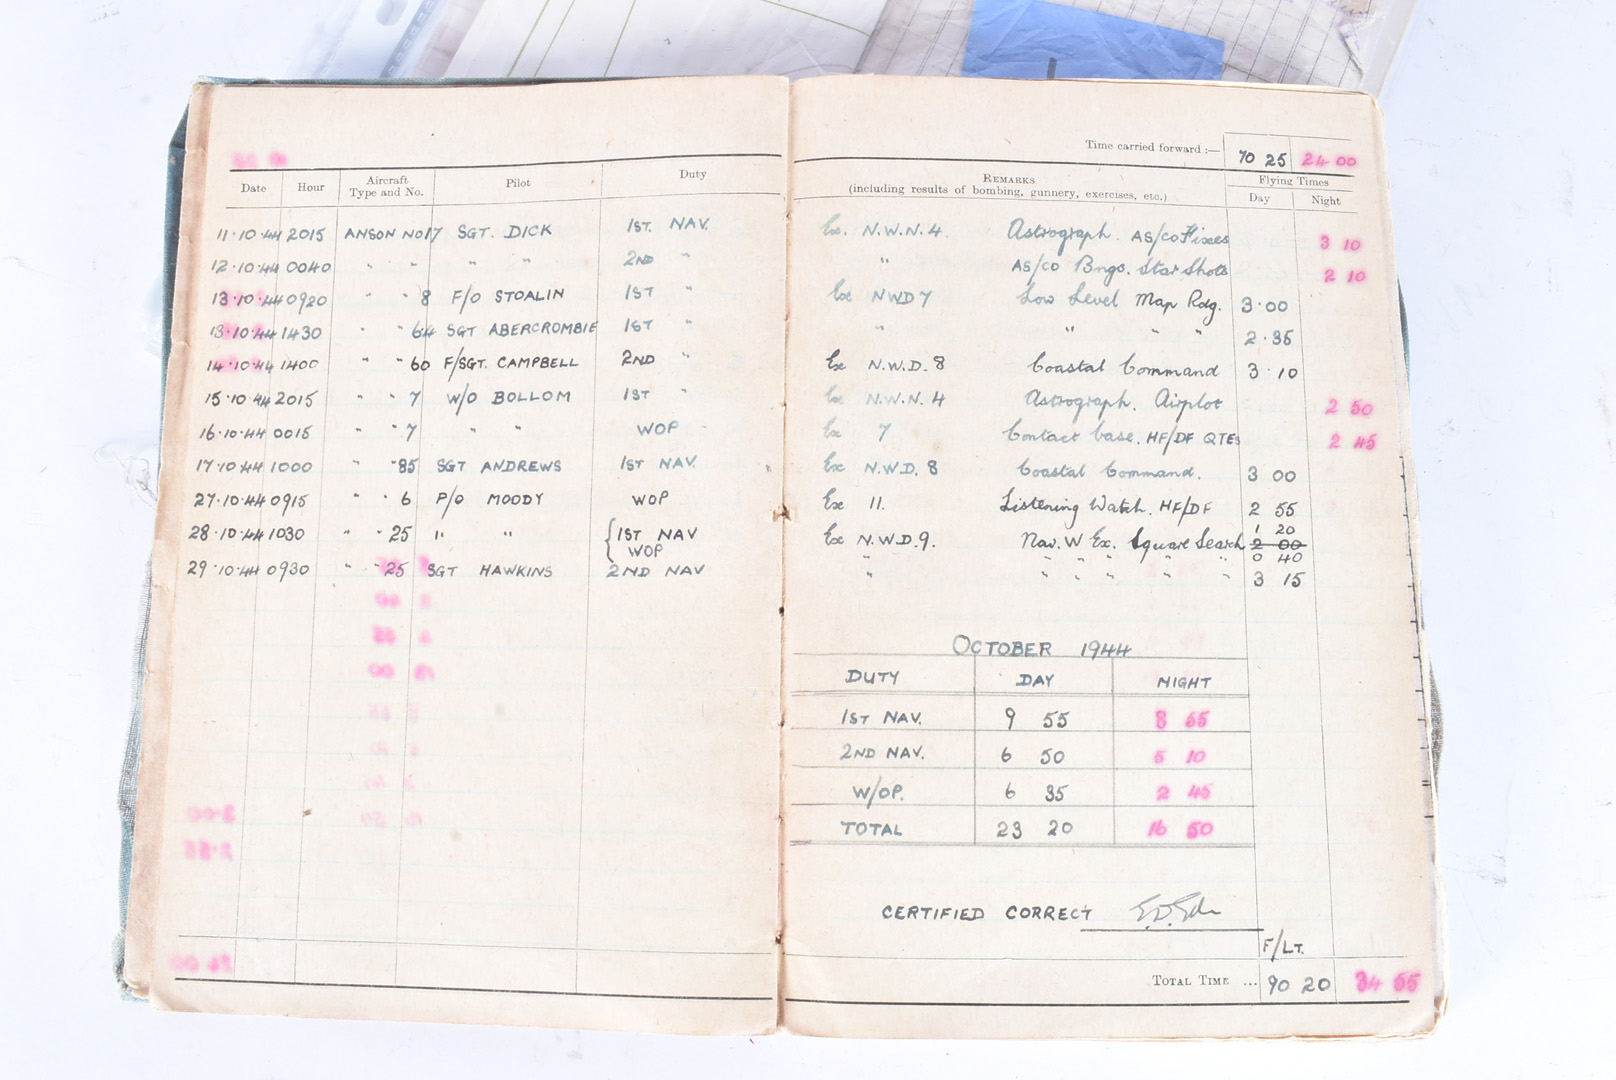 Time carried forward :— 70 25 24 00
Date Hour Aircraft Type and No. Pilot Duty REMARKS (including results of bombing, gunnery, exercises, etc.) Flying Times Day Night
11·10·44 2015 ANSON NO17 SGT. DICK 1ST. NAV. Ex. N.W.N. 4. Astrograph. AS/CO Fixes 3 10
12·10·44 0040 " " " " 2ND " " AS/CO Bngs. Star Shots 2 10
13·10·44 0920 " 8 F/O STOALIN 1ST " Ex NWD 7 Low Level Map Rdg. 3·00
13·10·44 1430 " " 64 SGT ABERCROMBIE 1ST " " " " " 2·35
14·10·44 1400 " " 60 F/SGT. CAMPBELL 2ND " Ex N.W.D. 8 Coastal Command 3·10
15·10·44 2015 " " 7 W/O BOLLOM 1ST " Ex N.W.N. 4 Astrograph. Airplot 2 50
16·10·44 0015 " " 7 " " WOP Ex 7 Contact base. HF/DF QTEs 2 45
17·10·44 1000 " " 85 SGT ANDREWS 1ST NAV. Ex N.W.D. 8 Coastal Command. 3 00
27·10·44 0915 " " 6 P/O MOODY WOP Ex 11. Listening Watch. HF/DF 2 55
28·10·44 1030 " " 25 " " { 1ST NAV Ex N.W.D. 9. Nav. W Ex. Square Search 1 20
2 00
WOP " " " " " " 0 40
29·10·44 0930 " " 25 SGT HAWKINS 2ND NAV " " " " " " 3 15
OCTOBER 1944
DUTY DAY NIGHT
1ST NAV. 9 55 8 55
2ND NAV. 6 50 5 10
W/OP. 6 35 2 45
TOTAL 23 20 16 50
CERTIFIED CORRECT
F/LT.
TOTAL TIME ... 90 20 34 55